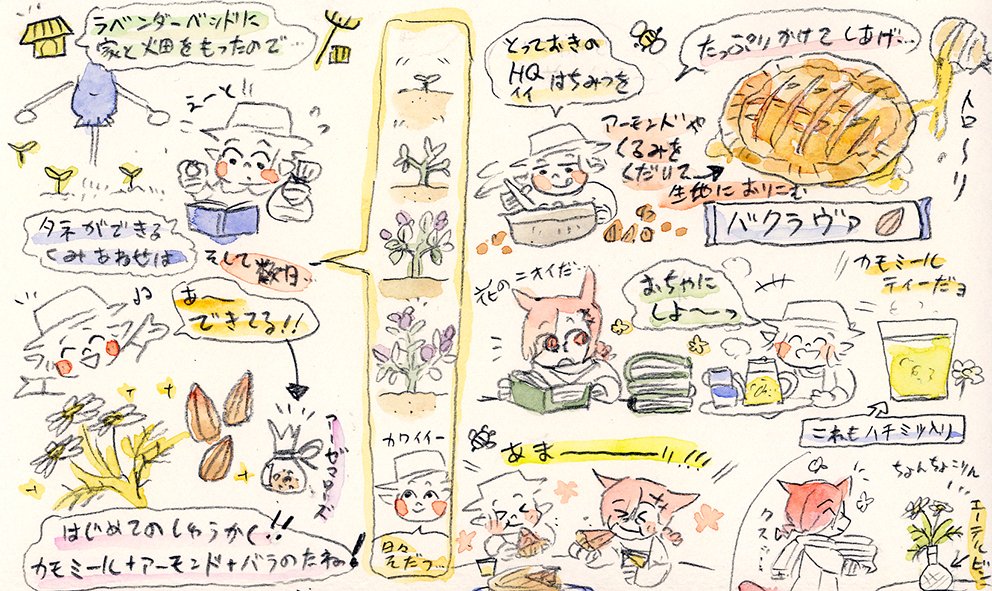 ラベンダーベッドに
家と畑をもったので…
えーと!!
タネができる
くみあわせは
そして数日…
あ〜
できてる!!
アーゼマローズ
はじめてのしゅうかく!!
カモミール+アーモンド+バラのたね!
カワイイー
日々
そだつ…
とっておきの
HQ
はちみつを
アーモンドや
くるみを
くだいて
生地におりこむ
たっぷりかけてしあげ…
トロ〜リ
バクラヴァ
花のニオイだ…
おちゃに
しよ〜っ
カモミール
ティーだヨ
これもハチミツ入り
あまーーーい!!!
クスッ…
ちょんちょこりん
エーテルビン